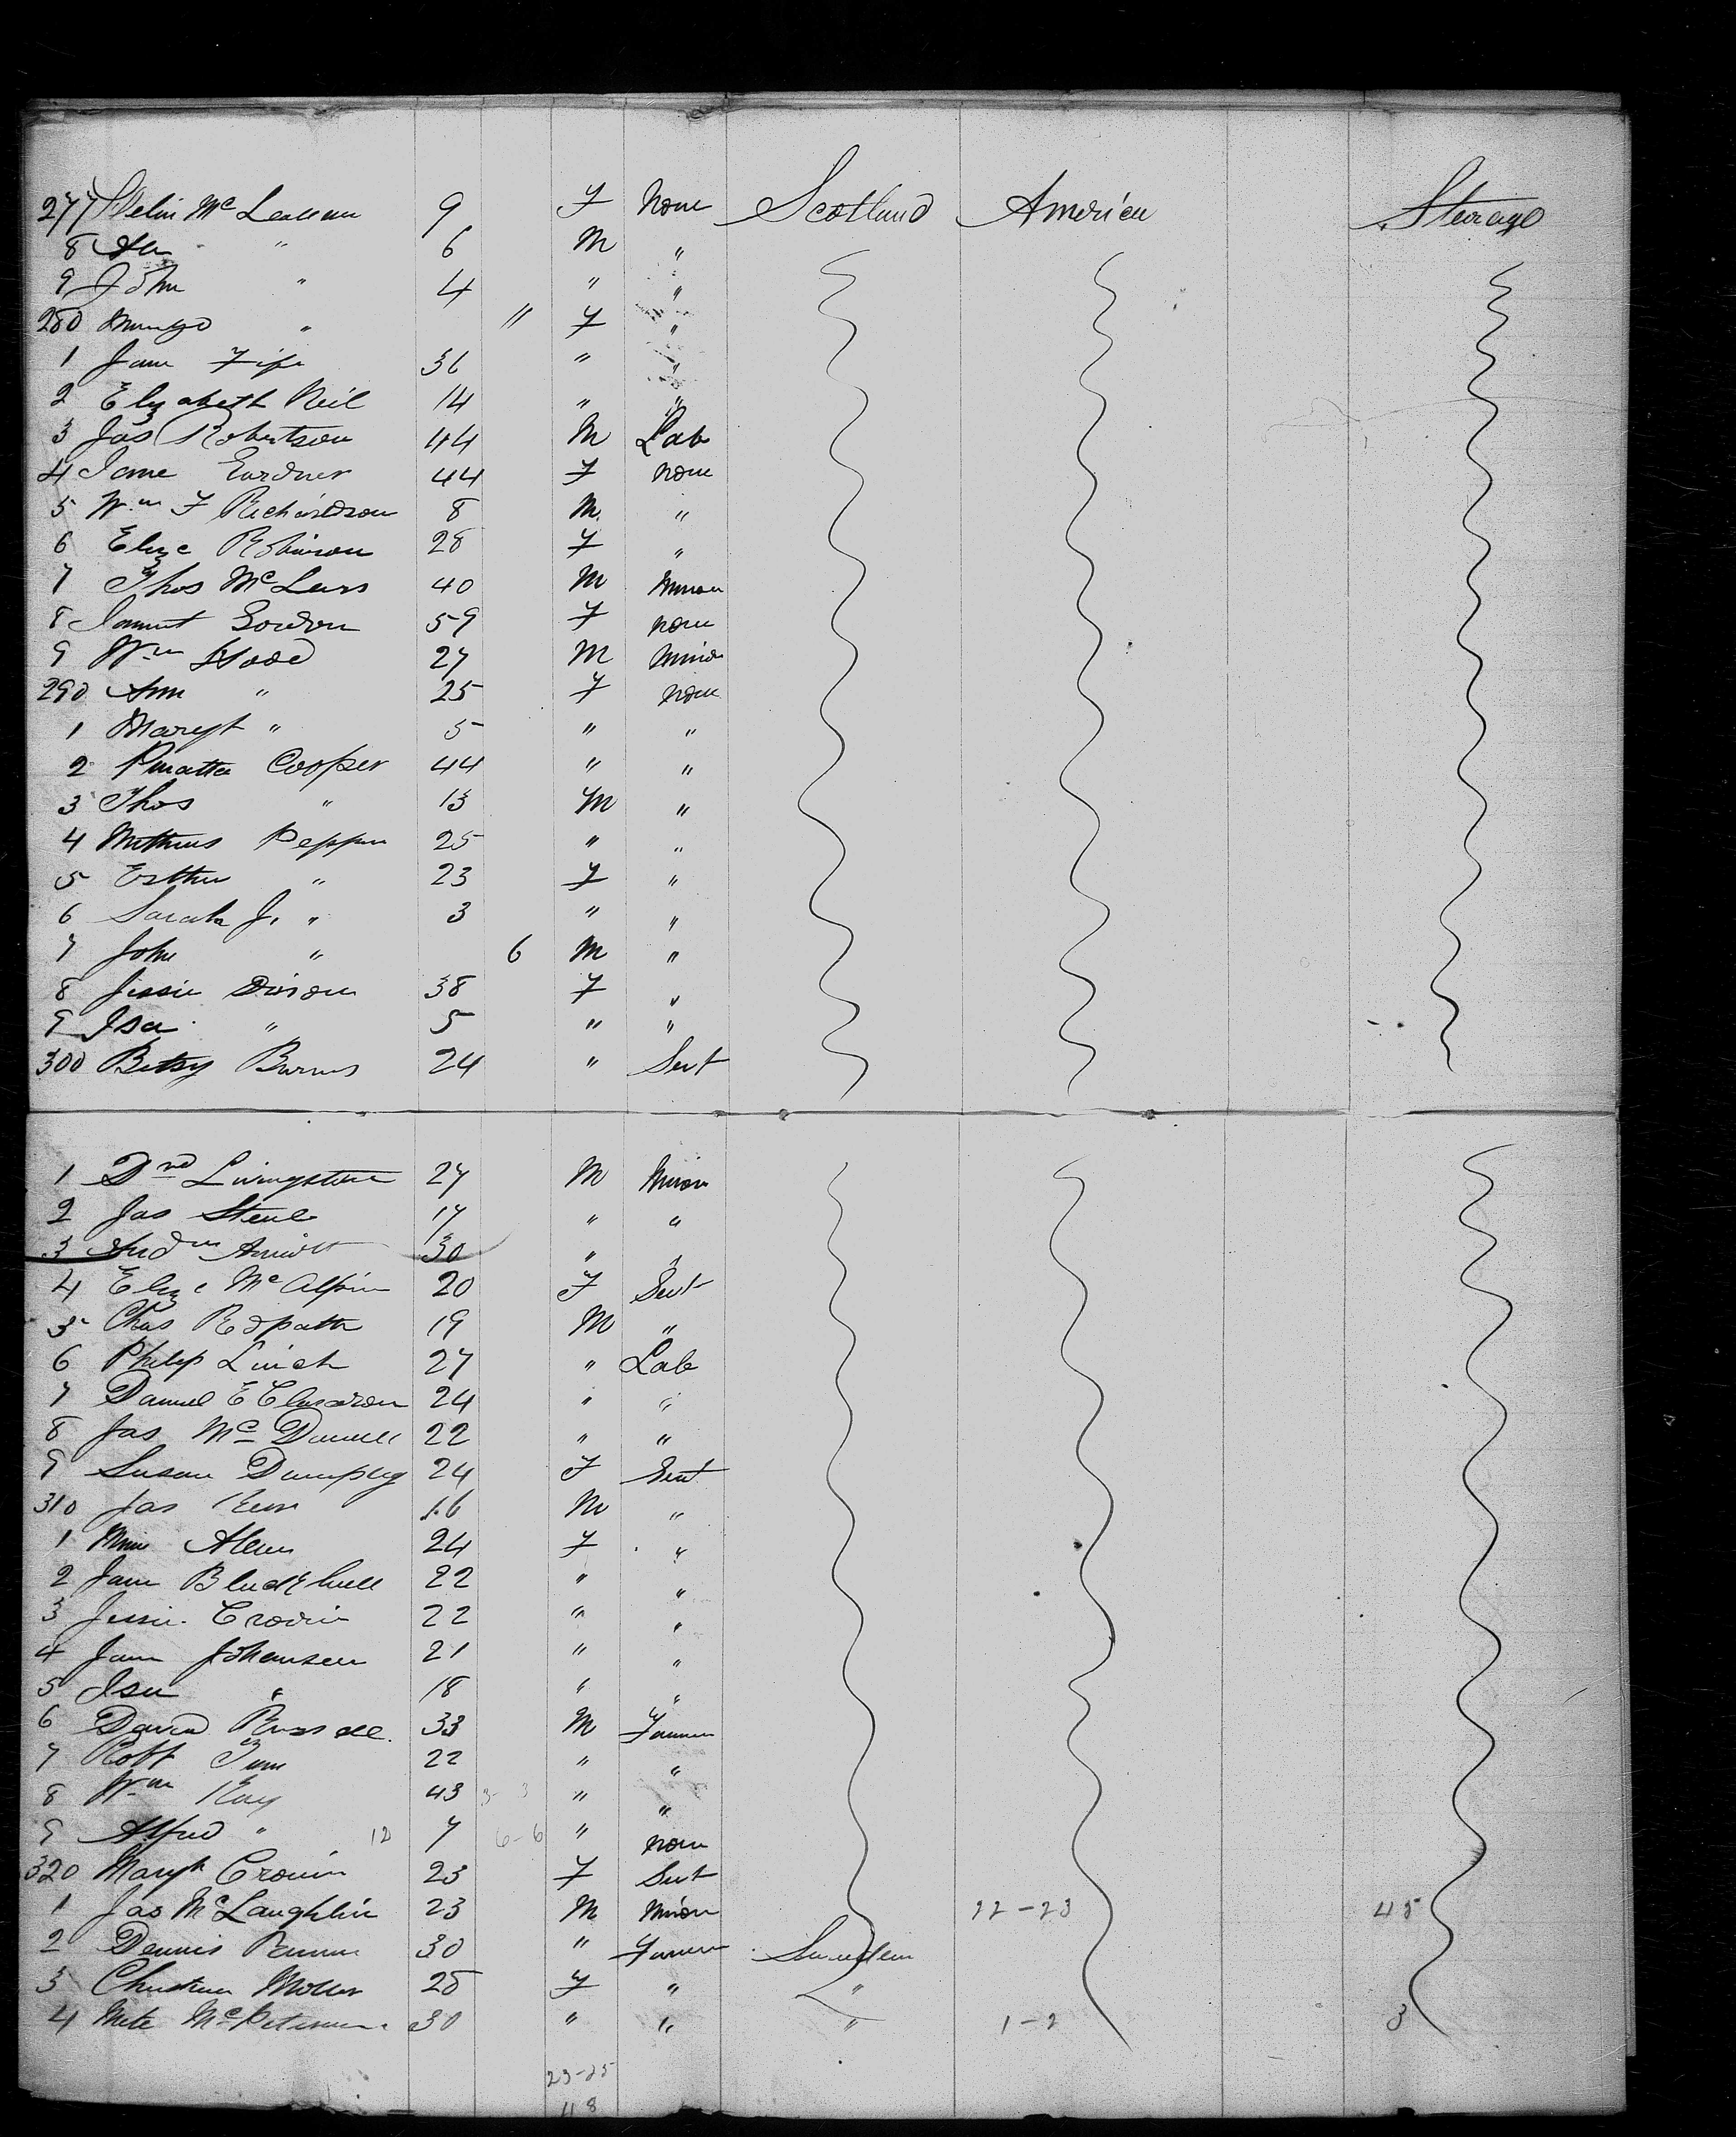 277 Helin Mc Lennan 9 F None Scotland America Sterage
8 " 6 M "
9 John " 4 " "
280 " 11 F "
1 Jane Fife 36 " "
2 Elizabeth Neil 14 " "
3 Jas Robertson 44 M Lab
4 Jane Gardner 44 F None
5 Wm F Richardson 8 M "
6 Eliza Robinson 28 F "
7 Thos Mc 40 M Minor
8 Gordon 59 F None
9 Wm Hood 27 M Minor
290 Ann " 25 F None
1 Margt " 5 " "
2 Cooper 44 " "
3 Thos " 13 M "
4 Mathius Pepper 25 " "
5 Esther " 23 F "
6 Sarah J. " 3 " "
7 John " 6 M "
8 Jessie Dixon 38 F "
9 Isa " 5 " "
300 Betsy Burns 24 " Sevt
1 Dvd Livingston 27 M Minor
2 Jas Steel 17 " "
3 Andw 30 " "
4 Eliza Mc Alpin 20 F Sevt
5 Chas Redpath 19 M "
6 Philip Linch 27 " Lab
7 Daniel E 24 " "
8 Jas Mc 22 " "
9 Susan Dempsey 24 F Sevt
310 Jas Kerr 16 M "
1 24 F "
2 Jane 22 " "
3 Jessie 22 " "
4 Jane Johansen 21 " "
5 Isa " 18 " "
6 David Russell 33 M Farmer
7 Robt 22 " "
8 Wm Kay 43 3 3 " "
9 Alfred " 12 7 6-6 " None
320 Margt Cronin 23 F Sevt
1 Jas McLaughlin 23 M Minor 22-23 45
2 Dennis 30 " Farmer Sweden
3 Moller 28 F " "
4 Mete Mc Petersen 30 " " " 1-2 3
23-25
48